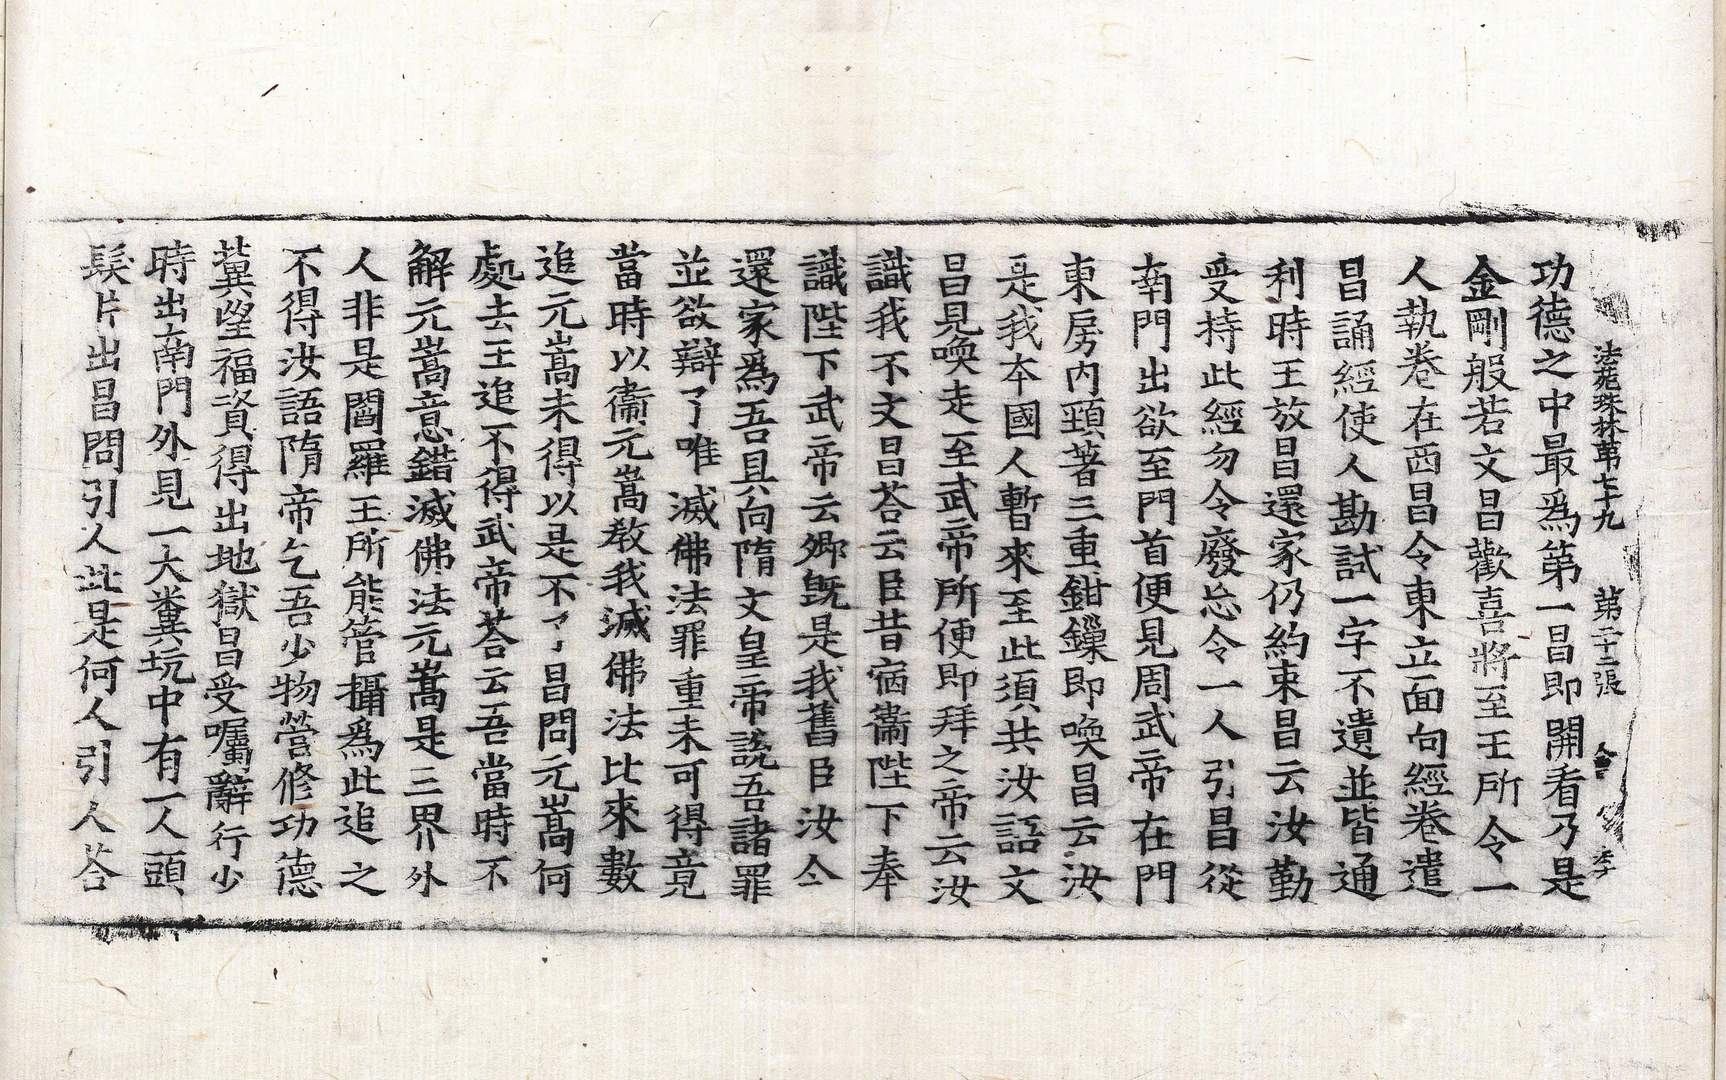 法苑珠林第七十九 第二十二張 會
功德之中最爲第一昌即開看乃是
金剛般若文昌歡喜將至王所令一
人執卷在西昌令東立面向經卷遣
昌誦經使人勘試一字不遺並皆通
利時王放昌還家仍約束昌云汝勤
受持此經勿令廢忘令一人引昌從
南門出欲至門首便見周武帝在門
東房內頸著三重鉗鏁即喚昌云汝
是我夲國人暫來至此須共汝語文
昌見喚走至武帝所便即拜之帝云汝
識我不文昌荅云臣昔宿衞陛下奉
識陛下武帝云卿旣是我舊臣汝今
還家爲吾具向隋文皇帝說吾諸罪
並欲辯了唯滅佛法罪重未可得竟
當時以衞元嵩教我滅佛法比來數
追元嵩未得以是不了昌問元嵩何
處去王追不得武帝荅云吾當時不
解元嵩意錯滅佛法元嵩是三界外
人非是閻羅王所能管攝爲此追之
不得汝語隋帝乞吾少物營修功德
兾望福資得出地獄昌受囑辭行少
時出南門外見一大糞坑中有一人頭
髮片出昌問引人此是何人引人荅